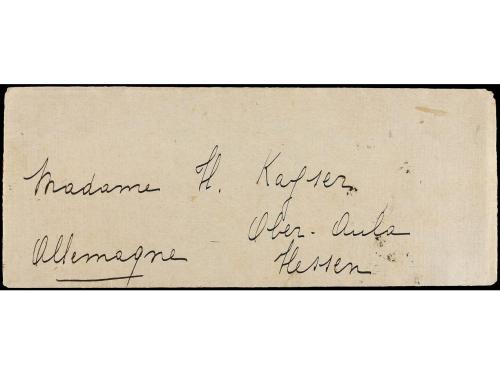 Madame H. Kayser
Ober-Aula
Allemagne Hessen